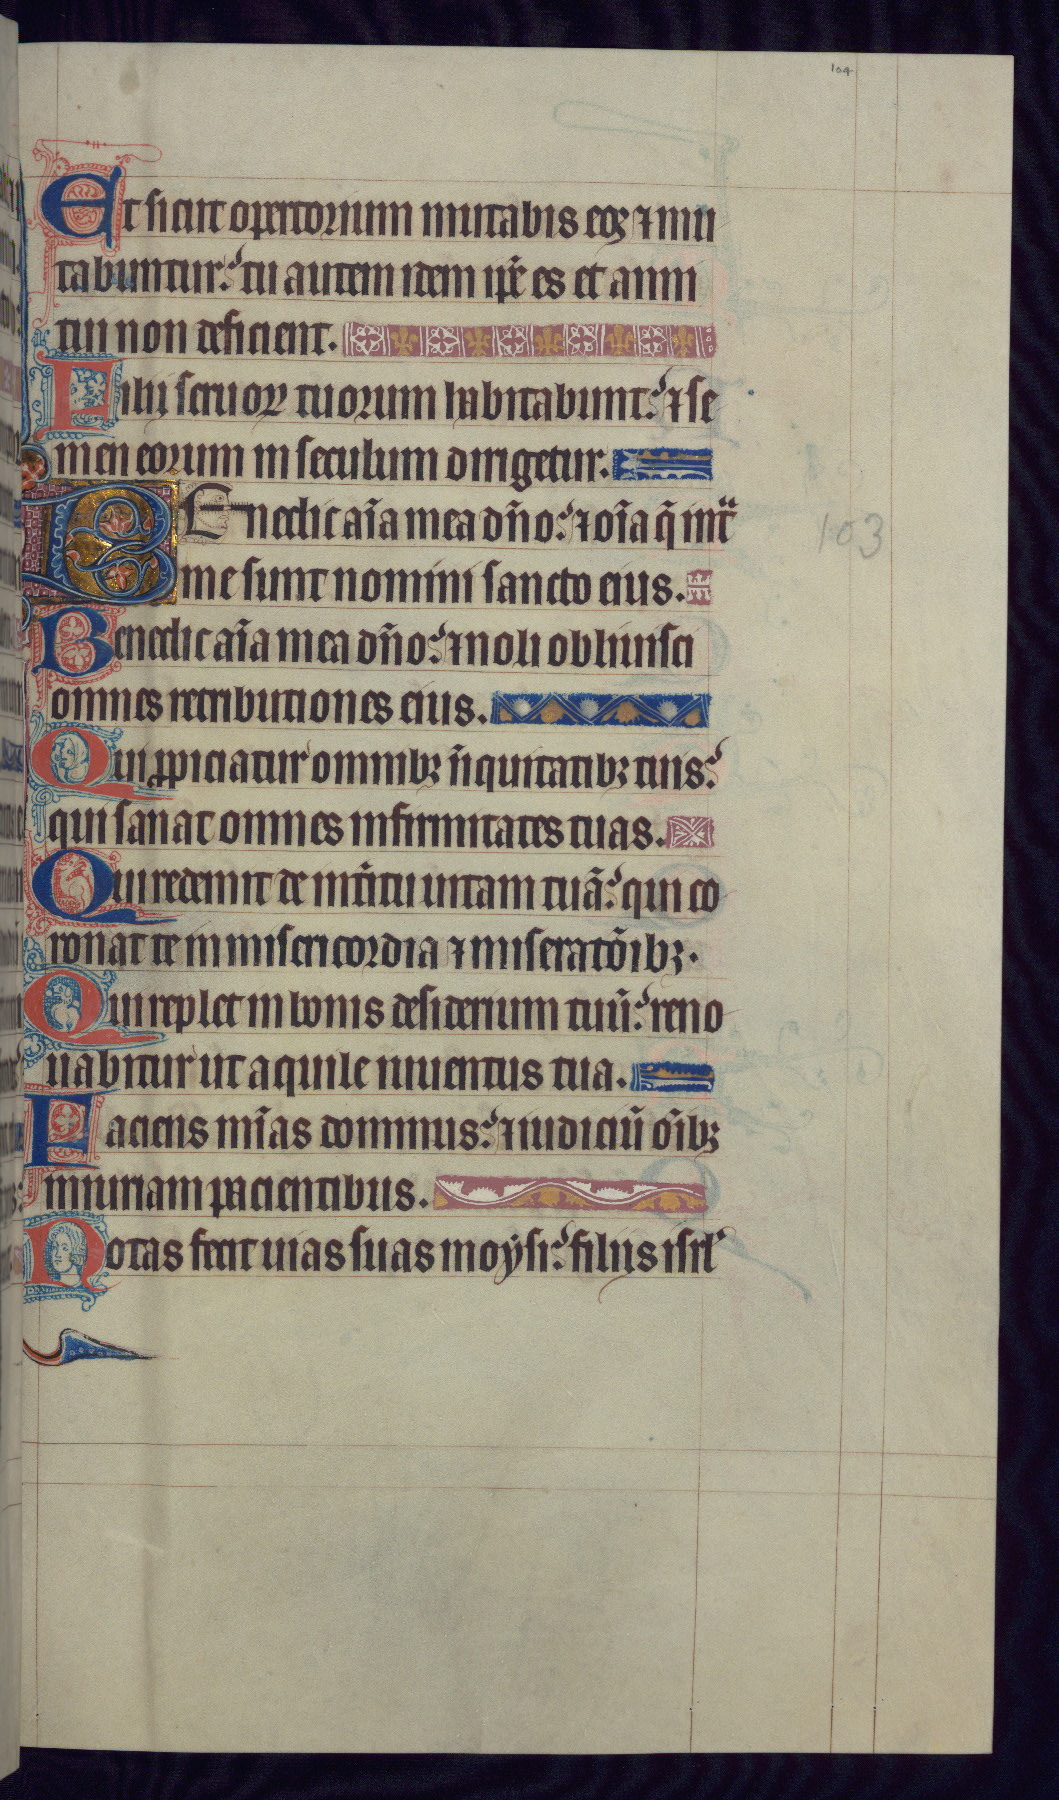 104
Et sicut opertorium mutabis eoꝝ ⁊ mu
tabuntur: tu autem idem ip̄e es et anni
tui non deficient.
Filij seruoꝝ tuorum habitabunt: ⁊ se
men eorum in seculum dirigetur.
BEnedic aīa mea dn̄o: ⁊ oīa q̄ intᷓ
me sunt nomini sancto eius.
Benedic aīa mea dn̄o: ⁊ noli obliuisci
omnes retributiones eius.
Qui ꝓpiciatur omnibꝫ iniquitatibꝫ tuis:
qui sanat omnes infirmitates tuas.
Qui redemit de int̾itu uitam tuā: qui co
ronat te in misericordia ⁊ miseratōibꝫ.
Qui replet in bonis desiderium tuū: reno
uabitur ut aquile iuuentus tua.
Faciens mīas dominus: ⁊ iudiciū oībꝫ
iniuriam pacientibus.
Notas fecit uias suas moysi: filijs isrl̾
103